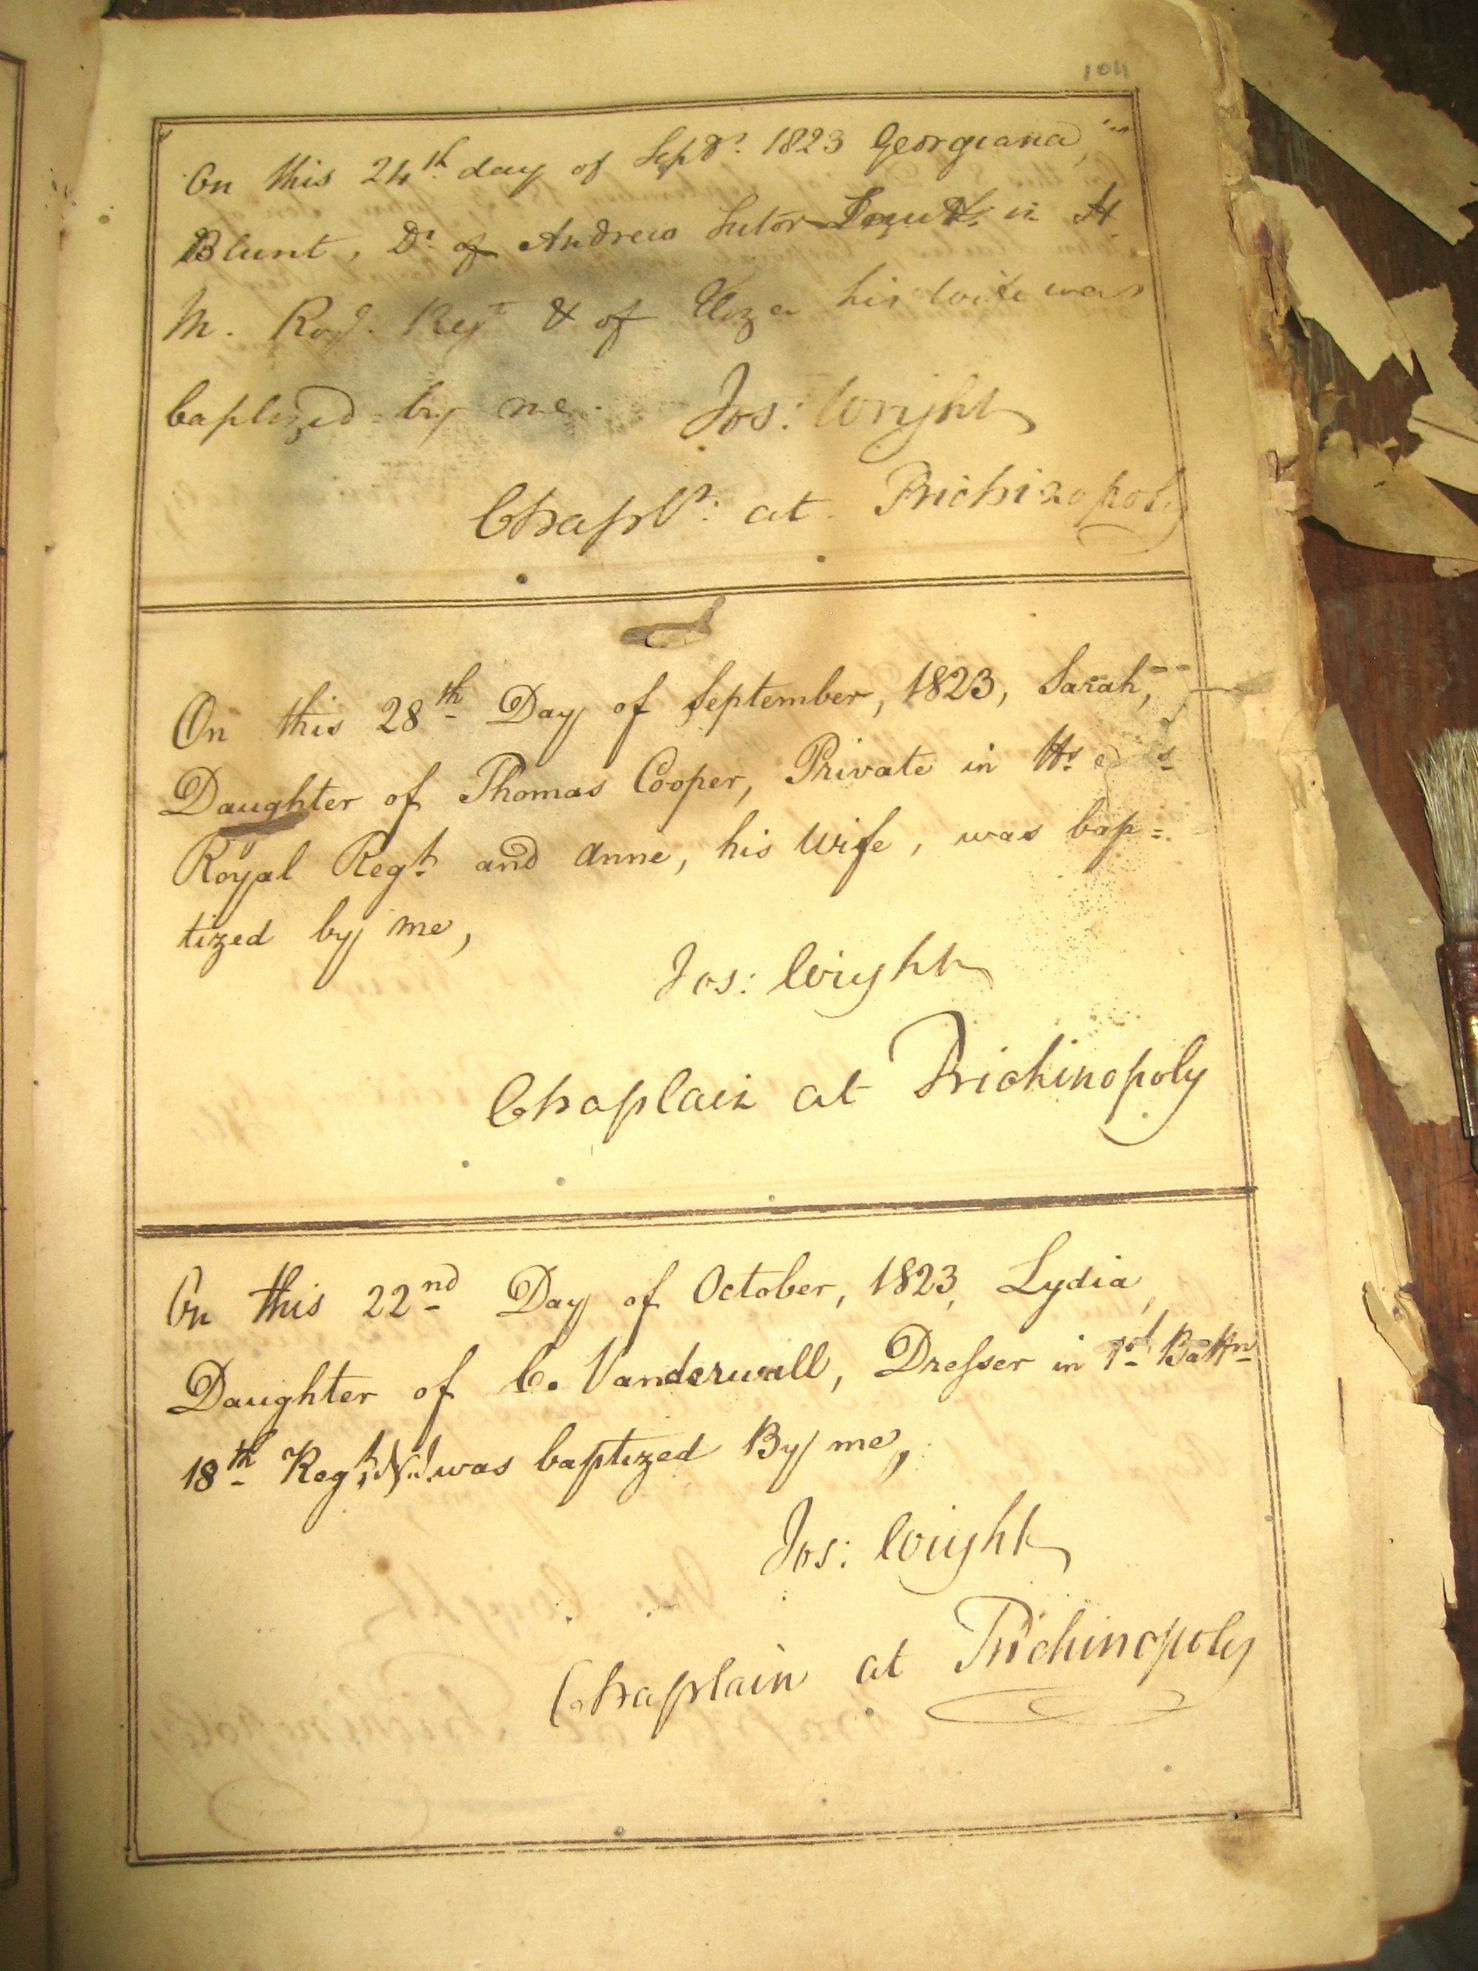 104
On this 24th day of Septr. 1823 Georgiana,
Blunt, Dr. of Andrew Sutor Lieut. in H.
M. Royl. Regt. & of Eliza his wife was
baptized by me. Jos: Wright
Chapln. at Trichinopoly
On this 28th Day of September, 1823, Sarah,
Daughter of Thomas Cooper, Private in His
Royal Regt. and Anne, his Wife, was bap=
tized by me,
Jos: Wright
Chaplain at Trichinopoly
On this 22nd Day of October, 1823, Lydia,
Daughter of C. Vanderwall, Dresser in 1st Battn
18th Regt. N.I. was baptized By me,
Jos: Wright
Chaplain at Trichinopoly